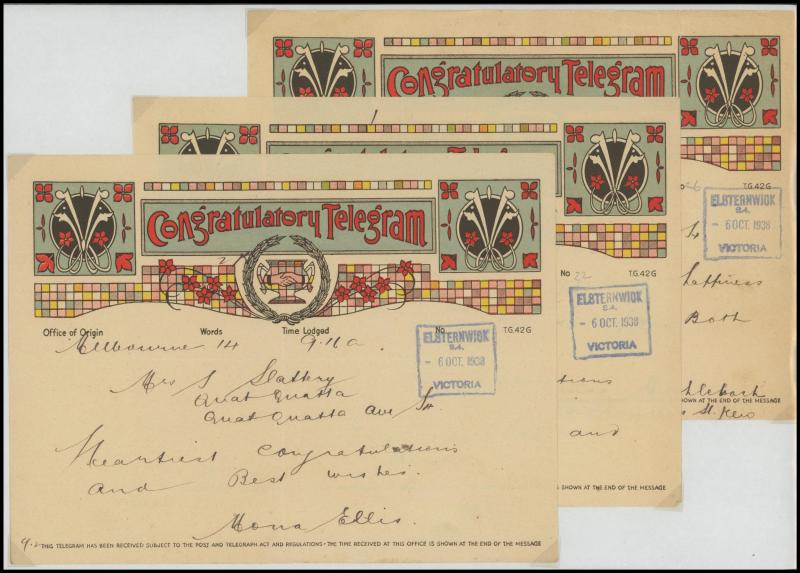 Congratulatory Telegram
26 T.G.42G
ELSTERNWICK
S.4.
- 6 OCT. 1938
VICTORIA
happiness
Both
SHOWN AT THE END OF THE MESSAGE
St. Kew
No 22 T.G.42G
ELSTERNWICK
S.4.
- 6 OCT. 1938
VICTORIA
and
IS SHOWN AT THE END OF THE MESSAGE
Congratulatory Telegram
Office of Origin Words Time Lodged No T.G.42G
Melbourne 14 9.11a
ELSTERNWICK
S.4.
- 6 OCT. 1938
VICTORIA
Mrs S Slattery
Quat Quatta
Quat Quatta Ave
Heartiest Congratulations
and Best wishes
Mona Ellis
THIS TELEGRAM HAS BEEN RECEIVED SUBJECT TO THE POST AND TELEGRAPH ACT AND REGULATIONS - THE TIME RECEIVED AT THIS OFFICE IS SHOWN AT THE END OF THE MESSAGE